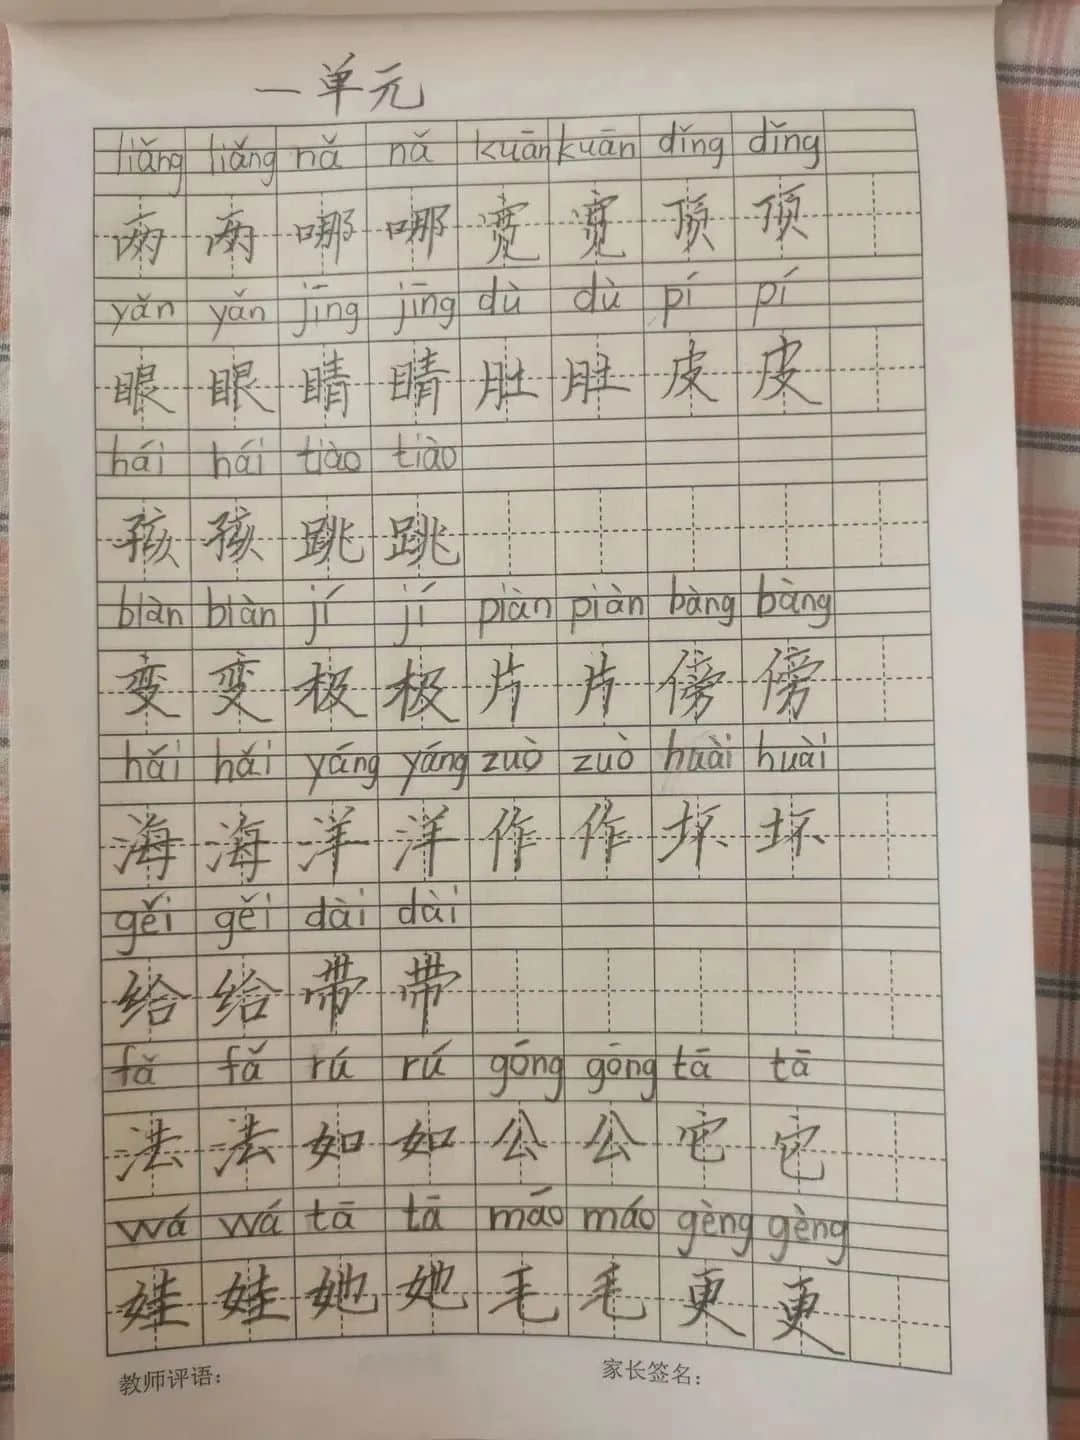 一单元
liǎng liǎng nǎ nǎ kuān kuān dǐng dǐng
两 两 哪 哪 宽 宽 顶 顶
yǎn yǎn jīng jīng dù dù pí pí
眼 眼 睛 睛 肚 肚 皮 皮
hái hái tiào tiào
孩 孩 跳 跳
biàn biàn jí jí piàn piàn bàng bàng
变 变 极 极 片 片 傍 傍
hǎi hǎi yáng yáng zuò zuò huài huài
海 海 洋 洋 作 作 坏 坏
gěi gěi dài dài
给 给 带 带
fǎ fǎ rú rú gōng gōng tā tā
法 法 如 如 公 公 它 它
wá wá tā tā máo máo gèng gèng
娃 娃 她 她 毛 毛 更 更
教师评语： 家长签名：